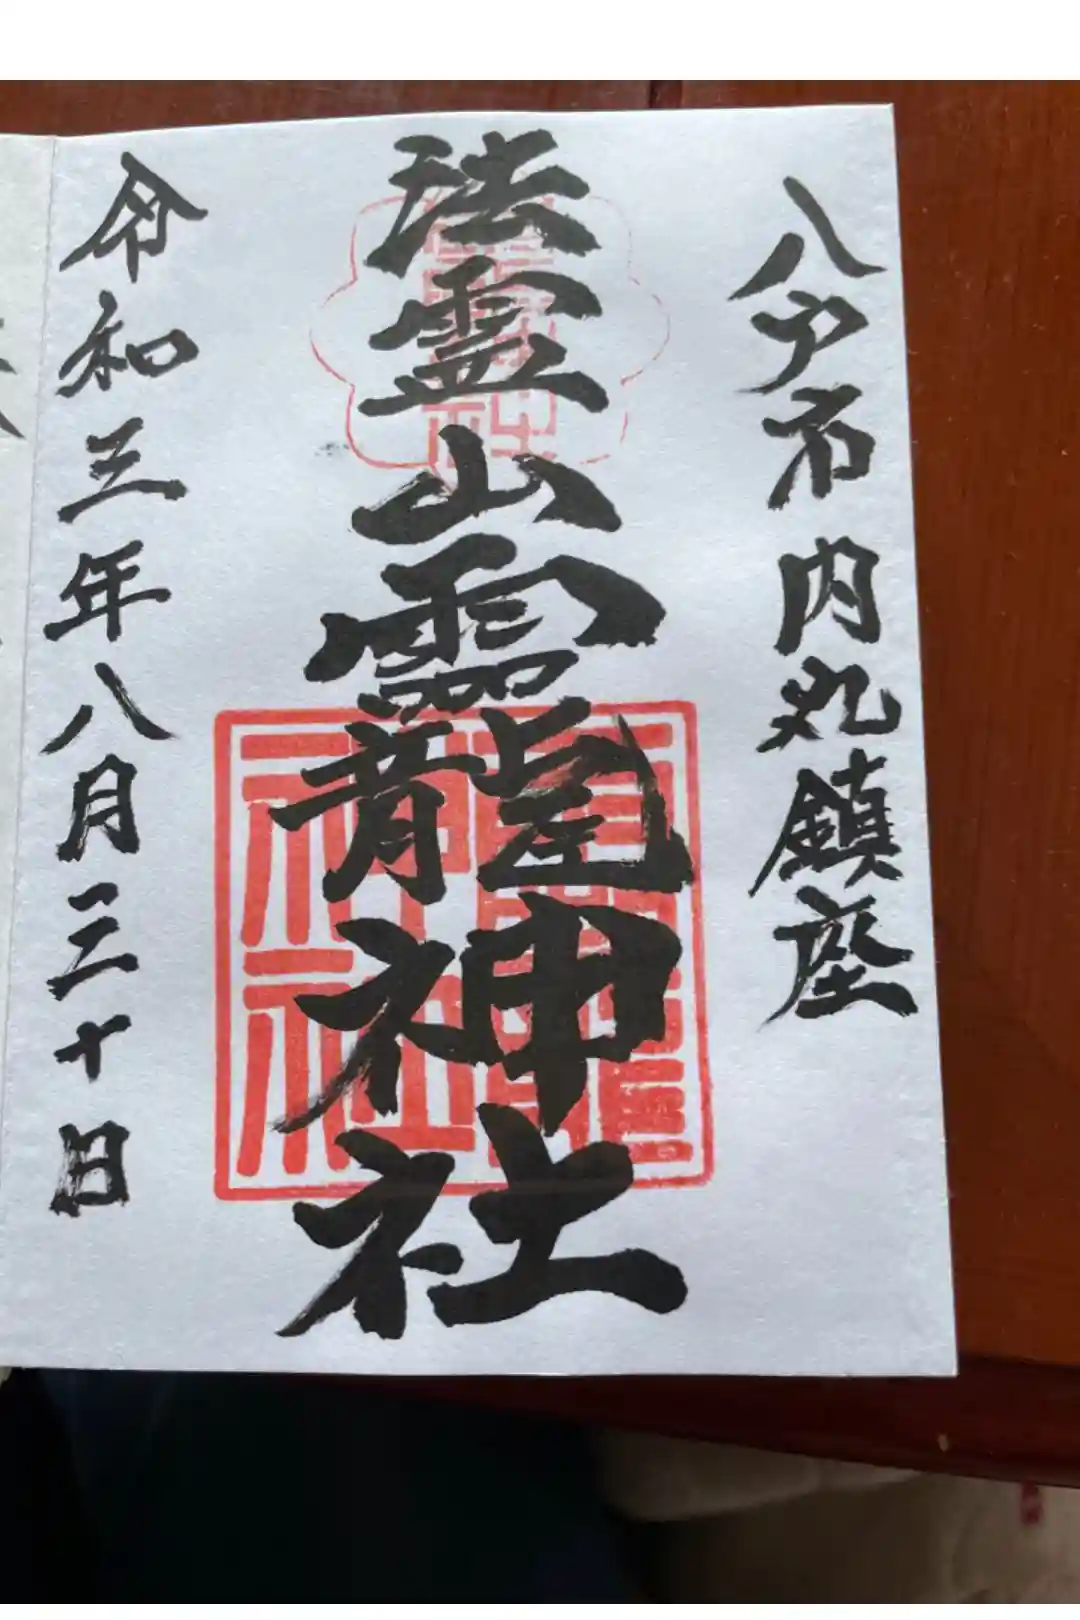 八戸市内丸鎮座
法霊山龗神社
令和三年八月三十日
神社